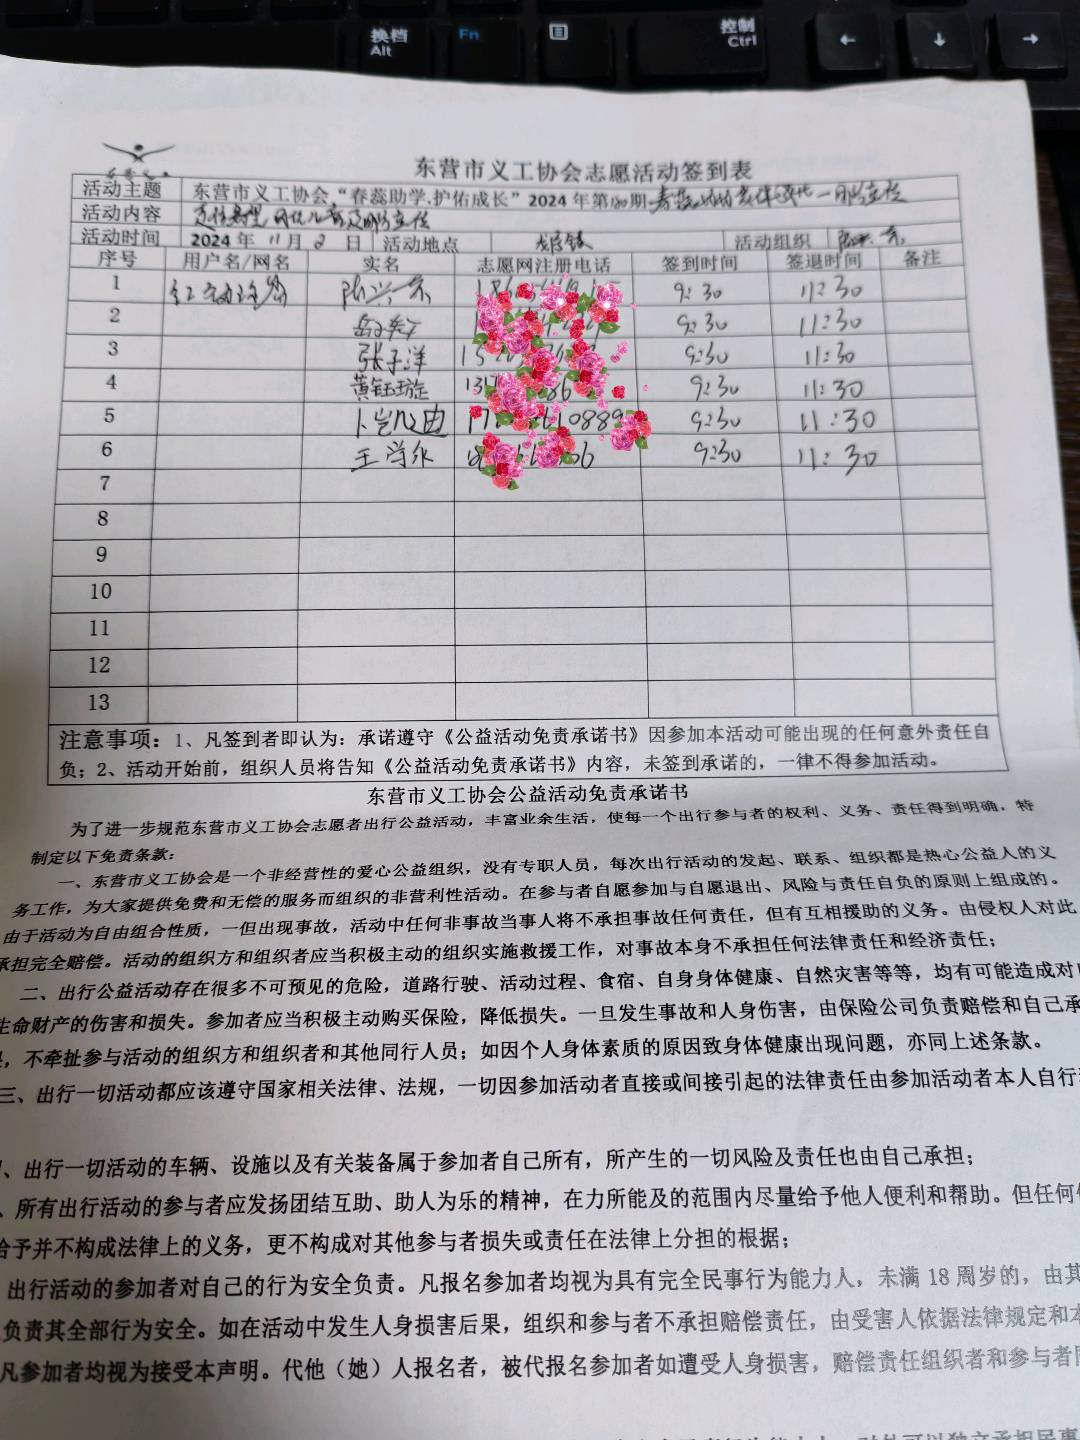 换档
Alt
Fn
控制
Ctrl
← ↓ →
东营市义工协会志愿活动签到表
活动主题 东营市义工协会“春蕊助学.护佑成长”2024年第 期
活动内容
活动时间 2024年11月2日 活动地点 活动组织
序号 用户名/网名 实名 志愿网注册电话 签到时间 签退时间 备注
1 9:30 11:30
2 9:30 11:30
3 张子洋 9:30 11:30
4 黄钰璇 9:30 11:30
5 9:30 11:30
6 9:30 11:30
7
8
9
10
11
12
13
注意事项：1、凡签到者即认为：承诺遵守《公益活动免责承诺书》因参加本活动可能出现的任何意外责任自
负；2、活动开始前，组织人员将告知《公益活动免责承诺书》内容，未签到承诺的，一律不得参加活动。
东营市义工协会公益活动免责承诺书
为了进一步规范东营市义工协会志愿者出行公益活动，丰富业余生活，使每一个出行参与者的权利、义务、责任得到明确，特
制定以下免责条款：
一、东营市义工协会是一个非经营性的爱心公益组织，没有专职人员，每次出行活动的发起、联系、组织都是热心公益人的义
务工作，为大家提供免费和无偿的服务而组织的非营利性活动。在参与者自愿参加与自愿退出、风险与责任自负的原则上组成的。
由于活动为自由组合性质，一但出现事故，活动中任何非事故当事人将不承担事故任何责任，但有互相援助的义务。由侵权人对此
承担完全赔偿。活动的组织方和组织者应当积极主动的组织实施救援工作，对事故本身不承担任何法律责任和经济责任；
二、出行公益活动存在很多不可预见的危险，道路行驶、活动过程、食宿、自身身体健康、自然灾害等等，均有可能造成对
生命财产的伤害和损失。参加者应当积极主动购买保险，降低损失。一旦发生事故和人身伤害，由保险公司负责赔偿和自己承
，不牵扯参与活动的组织方和组织者和其他同行人员；如因个人身体素质的原因致身体健康出现问题，亦同上述条款。
三、出行一切活动都应该遵守国家相关法律、法规，一切因参加活动者直接或间接引起的法律责任由参加活动者本人自行
、出行一切活动的车辆、设施以及有关装备属于参加者自己所有，所产生的一切风险及责任也由自己承担；
、所有出行活动的参与者应发扬团结互助、助人为乐的精神，在力所能及的范围内尽量给予他人便利和帮助。但任何
给予并不构成法律上的义务，更不构成对其他参与者损失或责任在法律上分担的根据；
出行活动的参加者对自己的行为安全负责。凡报名参加者均视为具有完全民事行为能力人，未满18周岁的，由其
负责其全部行为安全。如在活动中发生人身损害后果，组织和参与者不承担赔偿责任，由受害人依据法律规定和本
凡参加者均视为接受本声明。代他（她）人报名者，被代报名参加者如遭受人身损害，赔偿责任组织者和参与者同